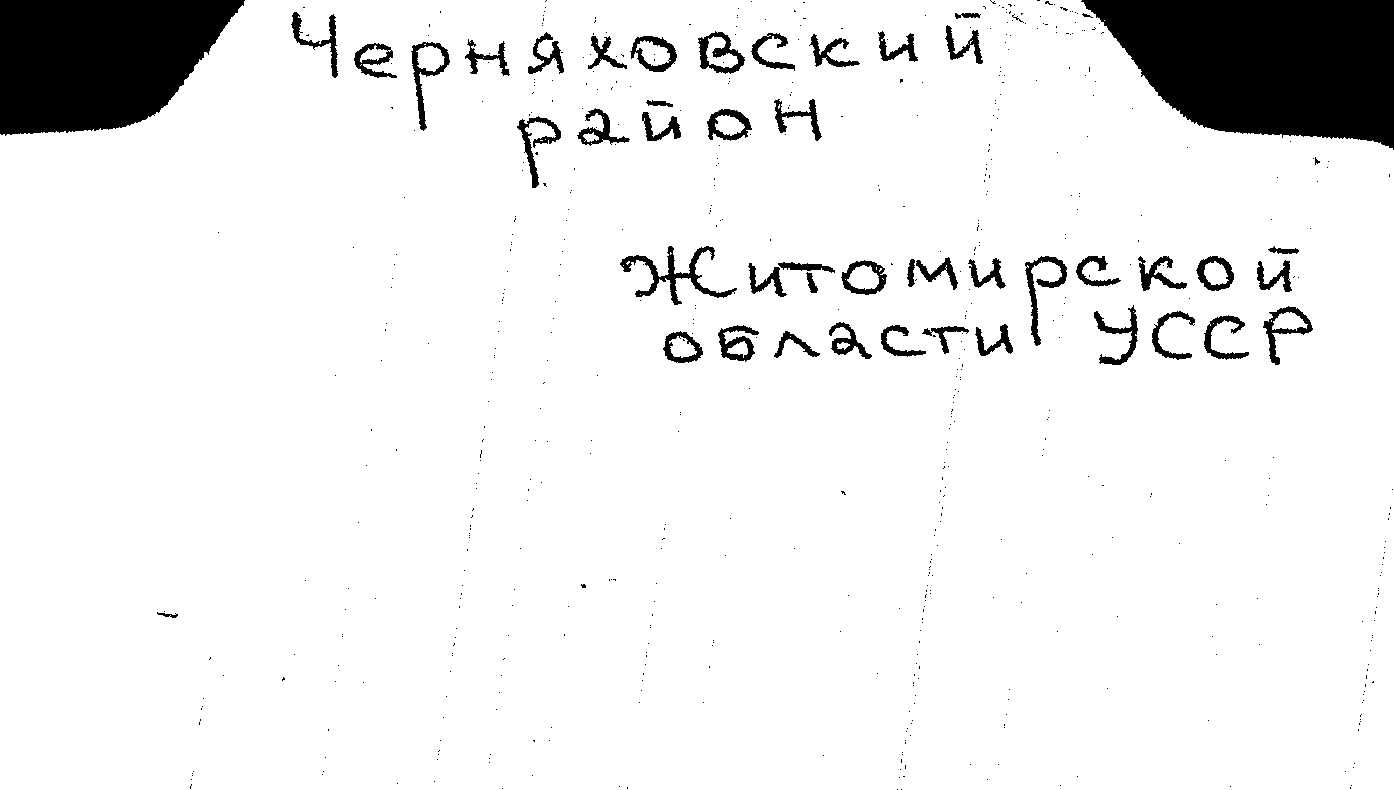 Черняховский
район
Житомирской
области УССР